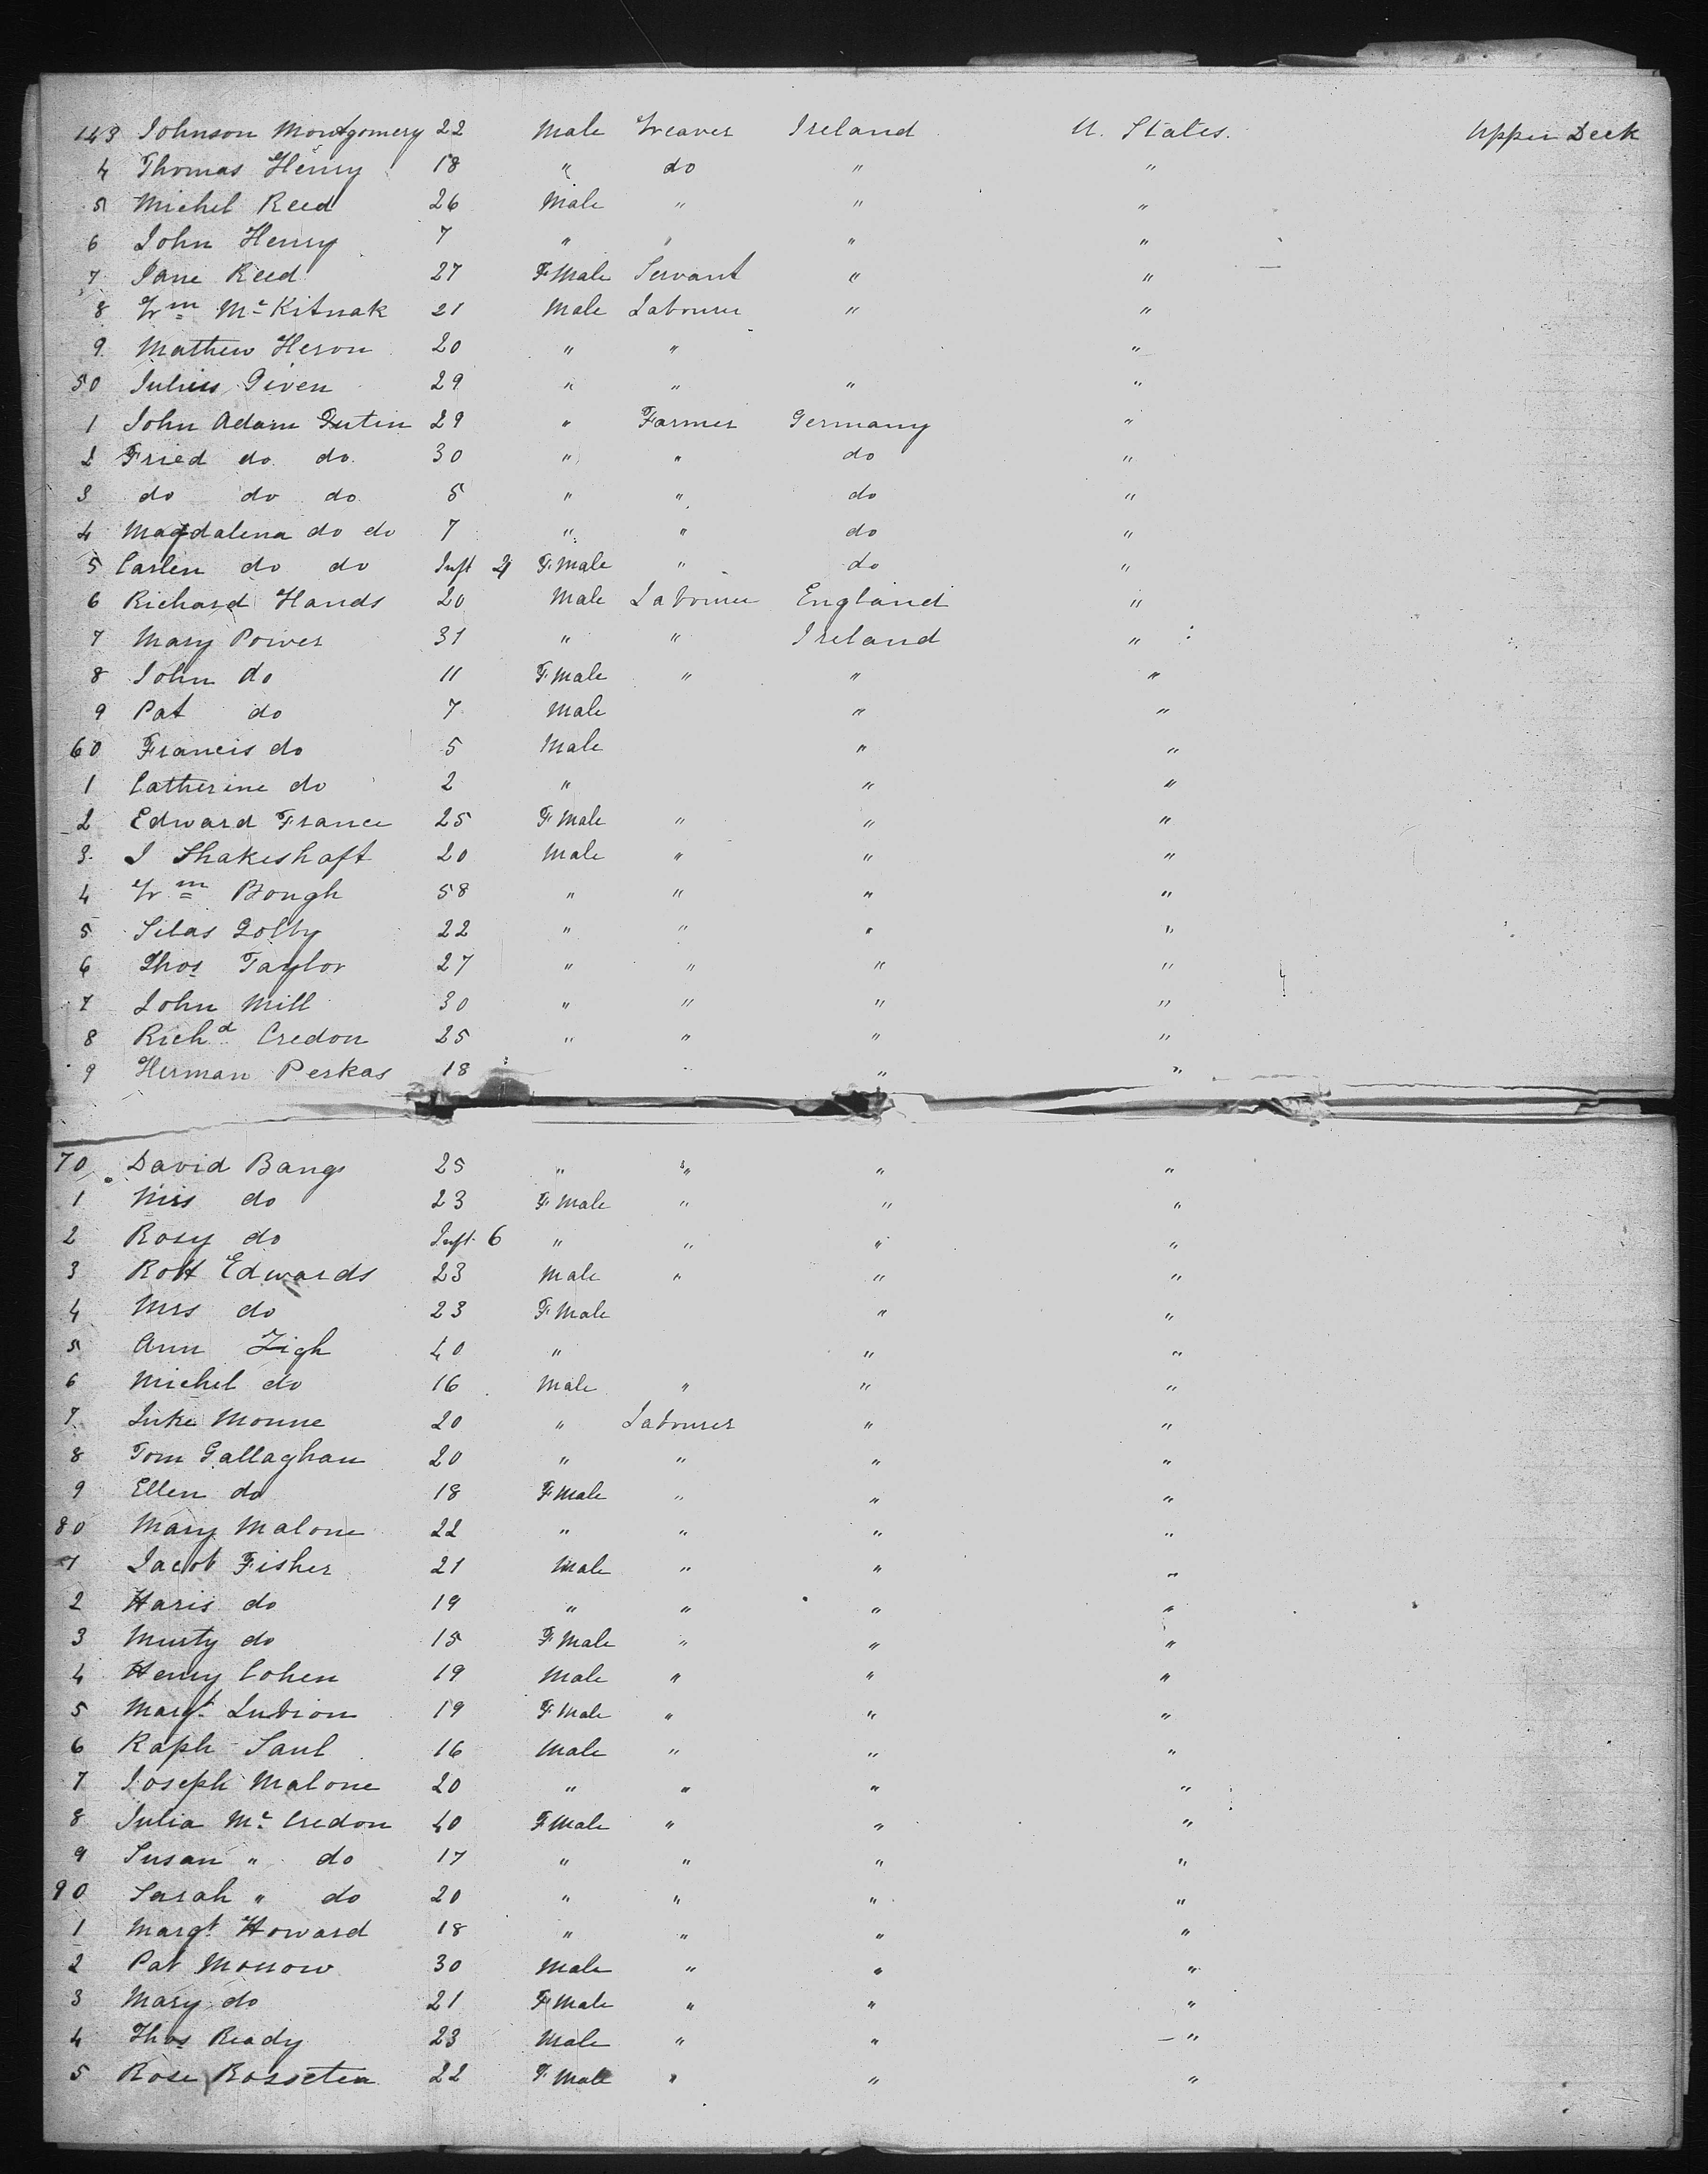 143 Johnson Montgomery 22 Male Weaver Ireland U. States. Upper Deck
4 Thomas Henry 18 " do " "
5 Michel Reed 26 Male " " "
6 John Henry 7 " " " "
7 Jane Reed 27 F Male Servant " "
8 Wm Mc Kitnak 21 Male Labourer " "
9 Mathew Heron 20 " " "
50 Julius Given 29 " " " "
1 John Adam Gutin 29 " Farmer Germany "
2 Fried do do 30 " " do "
3 do do do 5 " " do "
4 Magdalena do do 7 " " do "
5 Carlen do do Inft 2 F Male " do "
6 Richard Hands 20 Male Labourer England "
7 Mary Power 31 " " Ireland "
8 John do 11 F Male " " "
9 Pat do 7 Male " "
60 Francis do 5 Male " "
1 Catherine do 2 " " "
2 Edward France 25 F Male " " "
3 J Shakeshaft 20 Male " " "
4 Wm Bough 58 " " " "
5 Silas Golby 22 " " " "
6 Thos Taylor 27 " " " "
7 John Mill 30 " " " "
8 Richd Credon 25 " " " "
9 Herman Perkas 18 " "
70 David Bangs 25 " " " "
1 Mrs do 23 F Male " " "
2 Rosy do Inft 6 " " " "
3 Robt Edwards 23 Male " " "
4 Mrs do 23 F Male " "
5 Ann Zigh 40 " " "
6 Michel do 16 Male " " "
7 Luke Monne 20 " Labourer " "
8 Tom Gallaghan 20 " " " "
9 Ellen do 18 F Male " " "
80 Mary Malone 22 " " " "
1 Jacob Fisher 21 Male " " "
2 Haris do 19 " " " "
3 Musty do 15 F Male " " "
4 Henry Cohen 19 Male " " "
5 Margt Lubion 19 F Male " " "
6 Raph Saul 16 Male " " "
7 Joseph Malone 20 " " " "
8 Julia Mc Credon 40 F Male " " "
9 Susan " do 17 " " " "
90 Sarah " do 20 " " " "
1 Margt Howard 18 " " " "
2 Pat Morrow 30 Male " " "
3 Mary do 21 F Male " " "
4 Thos Ready 23 Male " " "
5 Rose Rosseten 22 F Male " " "